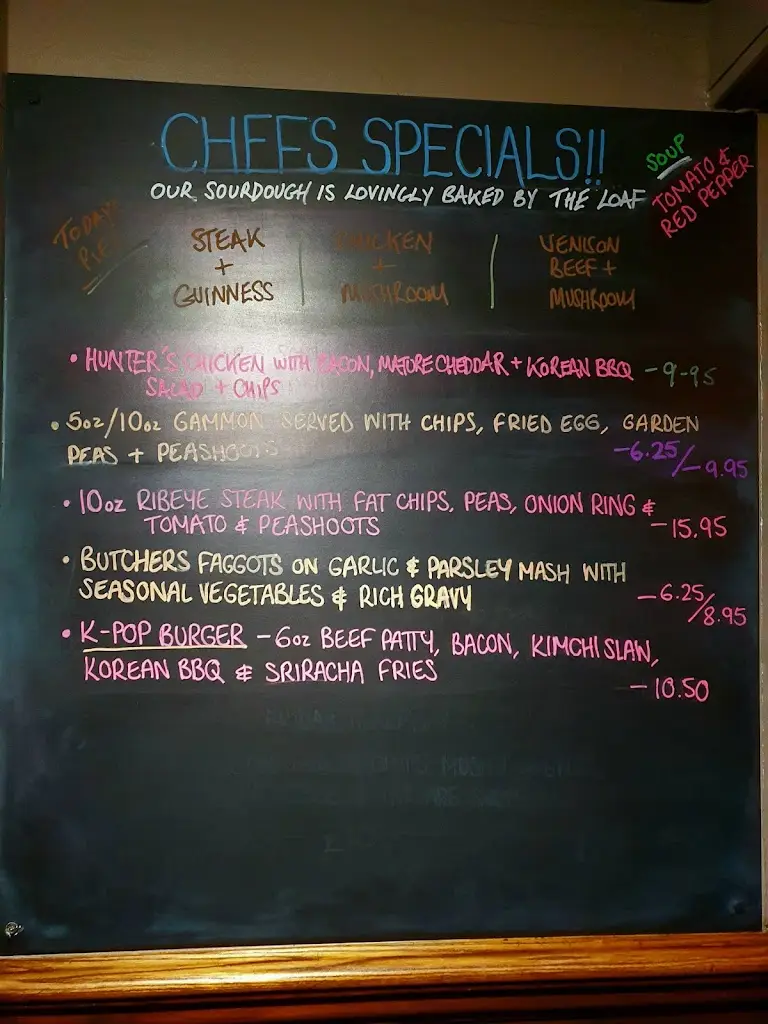 CHEFS SPECIALS!!
OUR SOURDOUGH IS LOVINGLY BAKED BY THE LOAF
SOUP
TOMATO &
RED PEPPER
TODAY'S
PIES
STEAK
+
GUINNESS
CHICKEN
+
MUSHROOM
VENISON
BEEF +
MUSHROOM
• HUNTER'S CHICKEN WITH BACON, MATURE CHEDDAR + KOREAN BBQ - 9-95
SALAD + CHIPS
• 5oz/10oz GAMMON SERVED WITH CHIPS, FRIED EGG, GARDEN
PEAS + PEASHOOTS -6.25/-9.95
• 10oz RIBEYE STEAK WITH FAT CHIPS, PEAS, ONION RING &
TOMATO & PEASHOOTS -15.95
• BUTCHERS FAGGOTS ON GARLIC & PARSLEY MASH WITH
SEASONAL VEGETABLES & RICH GRAVY -6.25/8.95
• K-POP BURGER - 6oz BEEF PATTY, BACON, KIMCHI SLAW,
KOREAN BBQ & SRIRACHA FRIES
-10.50